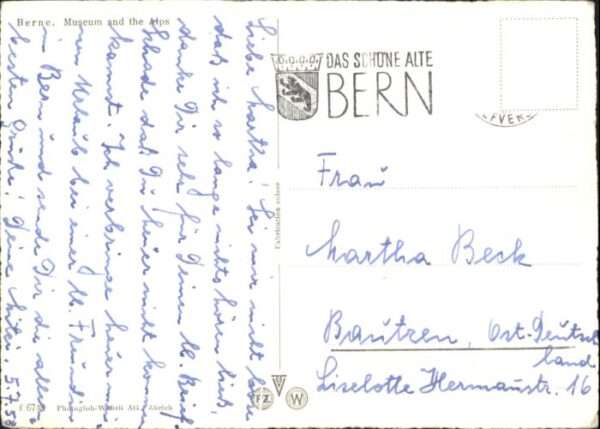 Berne. Museum and the Alps
Liebe Martha! Sei mir nicht böse
daß ich so lange nichts hören ließ,
danke Dir sehr für Deinen lb. Brief.
Schade daß Du heuer nicht kommen
kannst. Ich verbringe heuer mei-
nen Urlaub bei einer lb. Freundin
in Bern und sende Dir die aller-
besten Grüße! Deine 5.7.5
DAS SCHÖNE ALTE
BERN
Frau
Martha Beck
Bautzen, Ost-Deutsch
land
Liselotte Hermannstr. 16
Fabrication suisse
Photoglob-Wehrli AG. Zürich
FZ
W